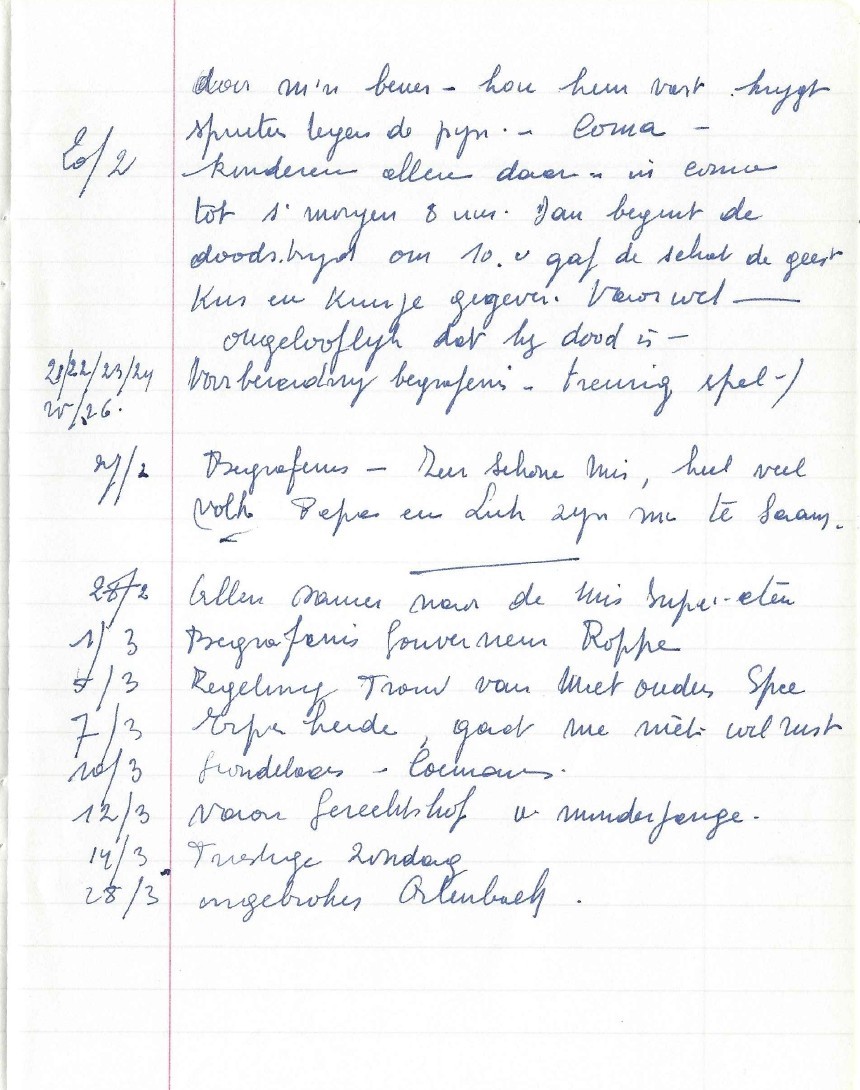 door m'n benen - hou hem vast. krygt
spuiten tegen de pyn. - Coma -
20/2 kinderen allen daar - in coma
tot s' morgen 8 uur. Dan begint de
doodstryd om 10.u gaf de schat de geest
Kus en kruisje gegeven. Vaarwel —
ongelooflyk dat hy dood is -
21/22/23/24 Voorbereiding begrafenis - treurig spel -
25/26.
27/2 Begrafenis - Zeer schone mis, heel veel
volk Papa en Luk zyn nu te saam.
28/2 Allen samen naar de mis Super-eten
1/3 Begrafenis Gouverneur Roppe
5/3 Regeling Trouw van Miet ouders Spee
7/3 heide, gaat me niet. wil rust
10/3 Grondelaers - Coemans.
12/3 Naar Gerechtshof v. minderjarige.
14/3 Triestige Zondag
28/3 ingebroken